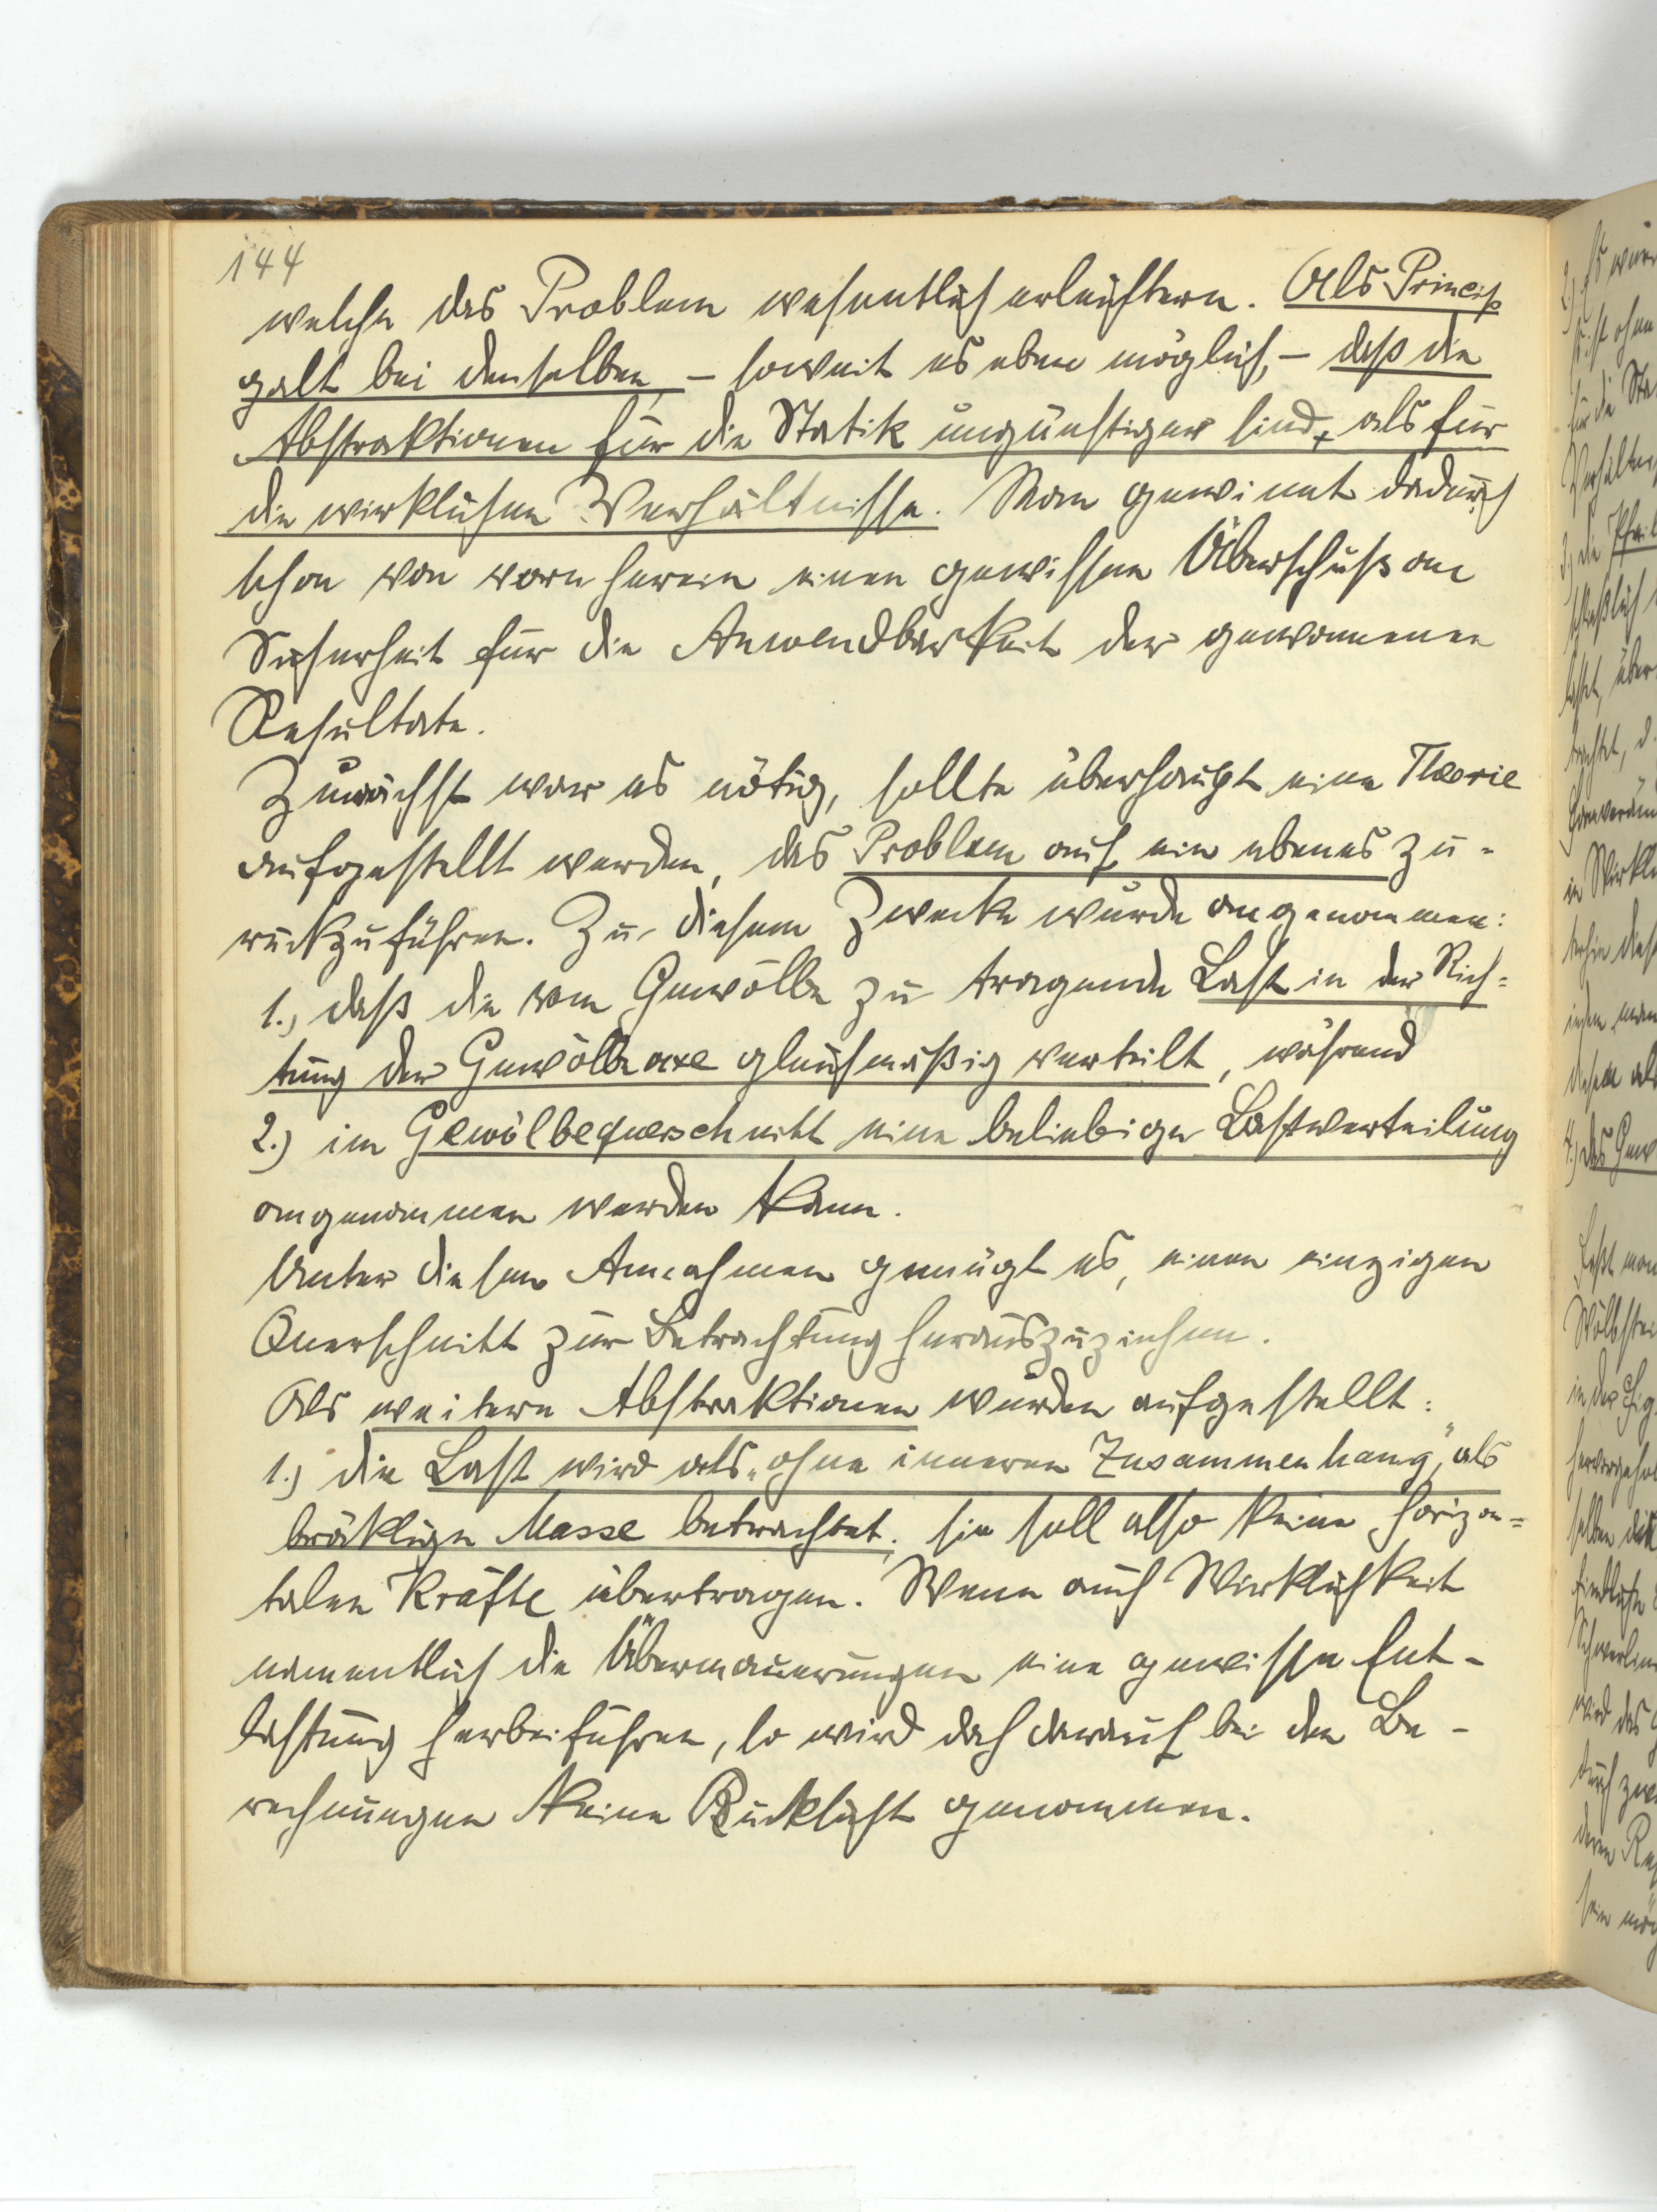 144
welche das Problem wesentlich erleichtern. Als Princip
galt bei denselben, – soweit es eben möglich, – daß die
Abstraktionen für die Statik ungünstiger sind, als für
die wirklichen Verhältnisse. Man gewinnt dadurch
schon von vorn herein einen gewissen Überschuß an
Sicherheit für die Anwendbarkeit der gewonnenen
Resultate.
Zunächst war es nötig, sollte überhaupt eine Theorie
aufgestellt werden, das Problem auf ein ebenes zu-
rückzuführen. Zu diesem Zwecke wurde angenommen:
1., daß die vom Gewölbe zu tragende Last in der Rich-
tung der Gewölbeaxe gleichmäßig verteilt, während
2.) im Gewölbequerschnitt eine beliebige Lastverteilung
angenommen werden kann.
Unter diesen Annahmen genügt es, einen einzigen
Querschnitt zur Betrachtung herauszuziehen.
Als weitere Abstraktionen wurden aufgestellt:
1.) die Last wird als „ohne inneren Zusammenhang", als
bröklige Masse betrachtet; sie soll also keine horizon-
talen Kräfte übertragen. Wenn auch Wirklichkeit
namentlich die Übermauerungen eine gewisse Ent-
lastung herbeiführen, so wird doch darauf bei den Be-
rechnungen keine Rücksicht genommen.